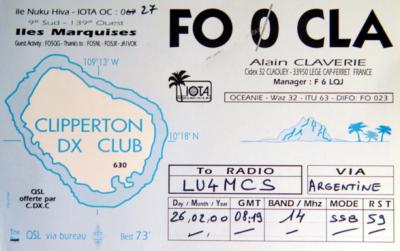 ile Nuku Hiva - IOTA OC : 067 27
9° Sud - 139° Ouest
Iles Marquises
Guest Activity : FO5QG - Thanks to : FO5NL - FO5JR - JA1VOK
FO 0 CLA
Alain CLAVERIE
Cidex 32 CLAOUEY - 33950 LEGE CAP-FERRET FRANCE
Manager : F 6 LQJ
IOTA
OCEANIE - Waz 32 - ITU 63 - DIFO: FO 023
109°13' W
CLIPPERTON
DX CLUB
630
10°18' N
QSL
offerte par
C.DX.C
QSL via bureau
Best 73'
To RADIO
VIA
LU4MCS
ARGENTINE
Day / Month / Year
GMT
BAND / Mhz
MODE
R S T
26.02.00
08.19
14
SSB
59